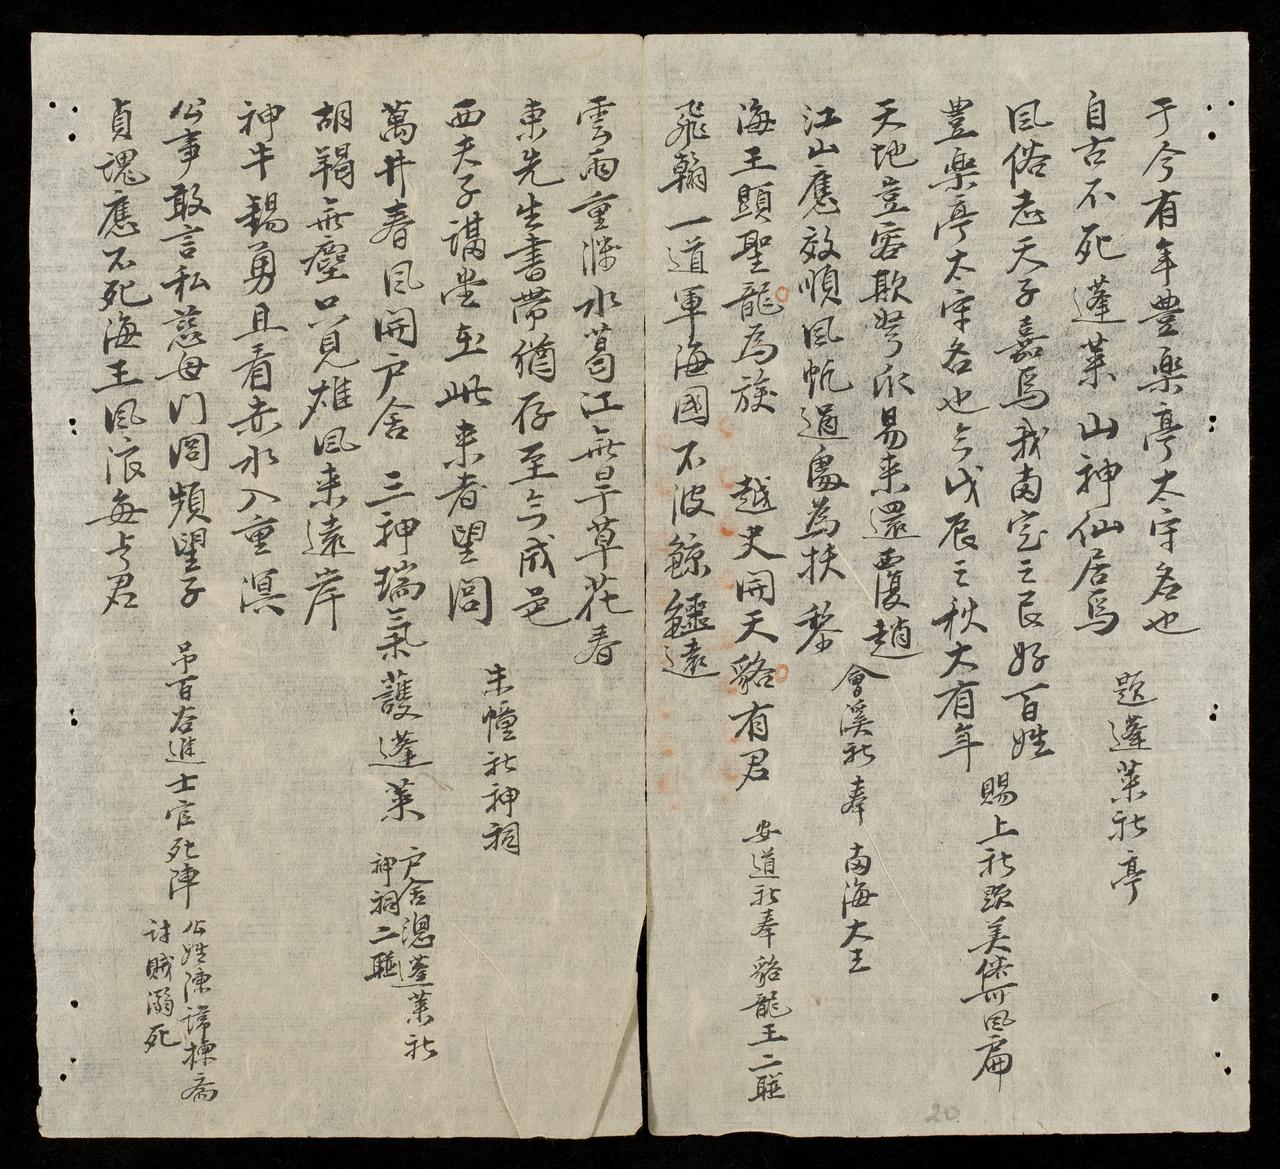 于今有年豊樂亭太守名也
自古不死蓬萊山神仙居焉
題蓬萊社亭
風俗志天子嘉焉我南定之民好百姓
豊樂亭太守名也今戊辰之秋大有年
賜上社題美俗可風扁
天地豈容欺弩爪易來還覆趙
江山應效順風帆過處為扶黎
會溪社奉 南海大王
海王顯聖龍為族 越史開天貉有君
飛翰一道軍海國不波鯨鱷遠
安道社奉貉龍王二聯
雲雨重濃水葛江無旱草花春
東先生書帶猶存至今成邑
西夫子講堂在此來者望閭
朱幢社神祠
萬井春風開户舍 三神瑞氣護蓬萊
户舍總蓬萊社
神祠二聯
胡羯無塵只見雄風来遠岸
神牛錫勇且看赤水入重溟
公事敢言私慈母門閭頻望子
貞魂應不死海王風浪每與君
吊百谷進士官死陣
公姓陳諱棟齋
討賊溺死
20